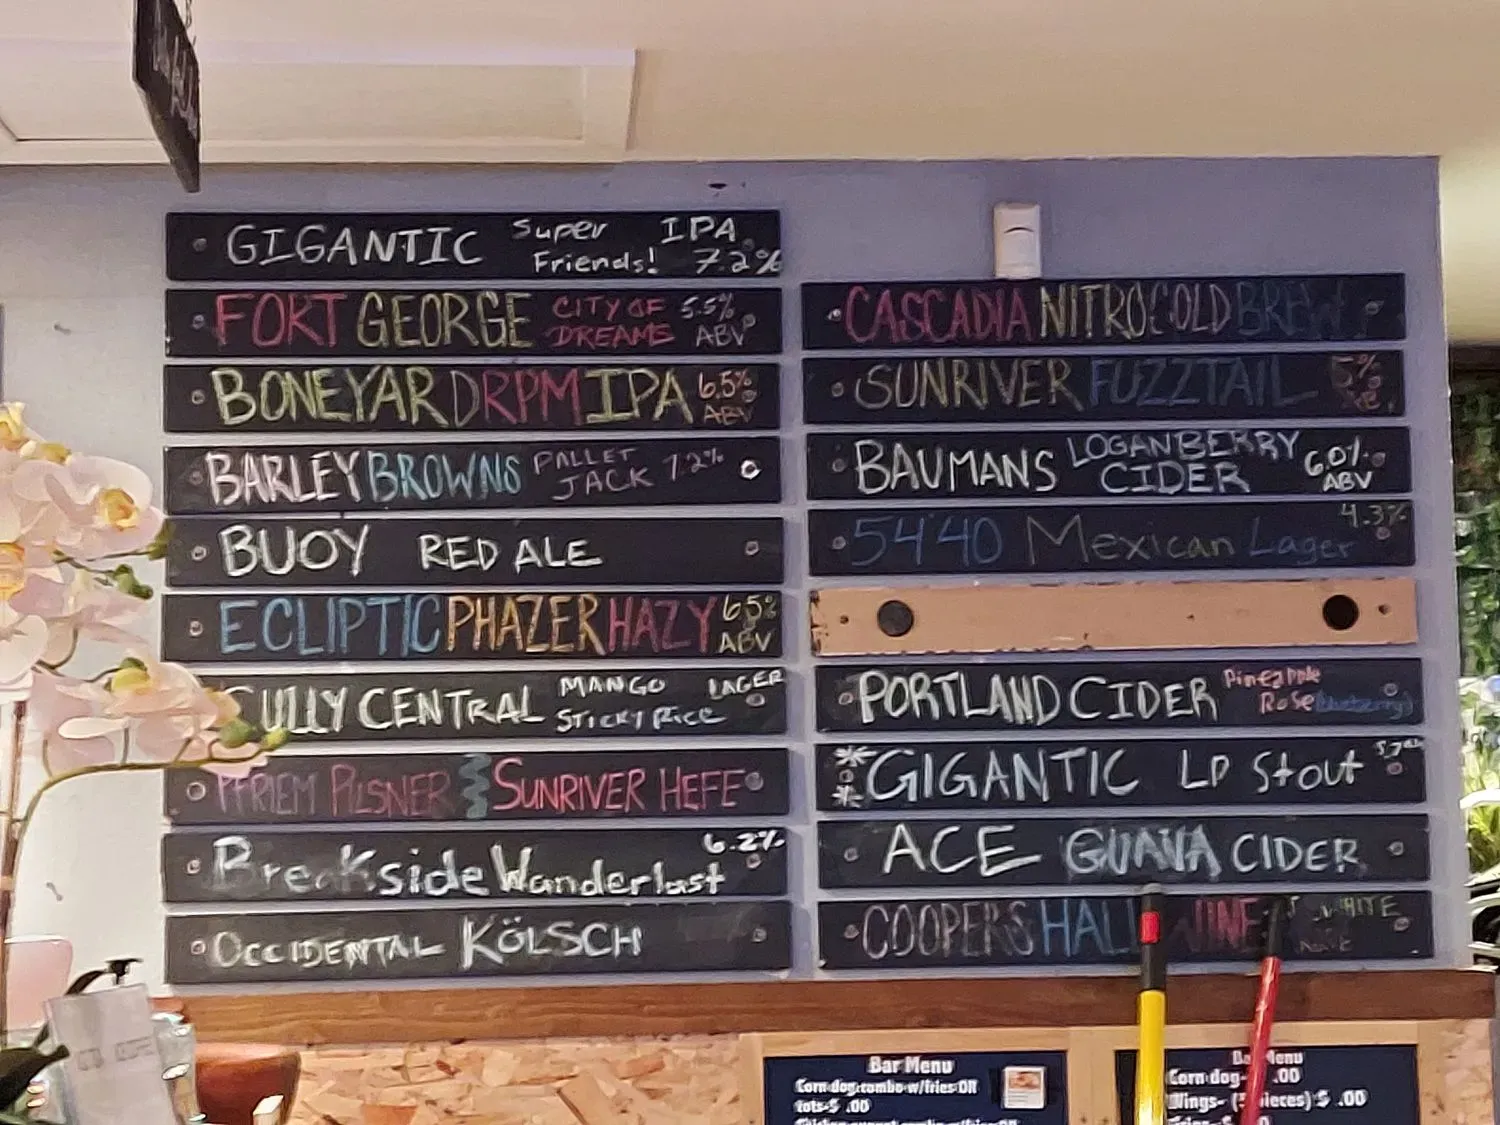 GIGANTIC Super Friends! IPA 7.2%
FORT GEORGE CITY OF DREAMS 5.5% ABV
BONEYAR DRPM IPA 6.5% ABV
BARLEY BROWNS PALLET JACK 7.2%
BUOY RED ALE
ECLIPTIC PHAZER HAZY 6.5% ABV
GULLY CENTRAL MANGO STICKY RICE LAGER
PFRIEM PILSNER SUNRIVER HEFE
Breakside Wanderlust 6.2%
OCCIDENTAL KÖLSCH
CASCADIA NITRO COLD BREW
SUNRIVER FUZZTAIL 5%
BAUMANS LOGANBERRY CIDER 6.0% ABV
54'40 Mexican Lager 4.3%
PORTLAND CIDER Pineapple Rose (blueberry)
GIGANTIC LP Stout 5.7%
ACE GUAVA CIDER
COOPERS HALL WINE WHITE
Bar Menu
Corn dog combo w/fries OR
tots-$ .00
Bar Menu
Corn dog- .00
Wings- (5 pieces) $ .00